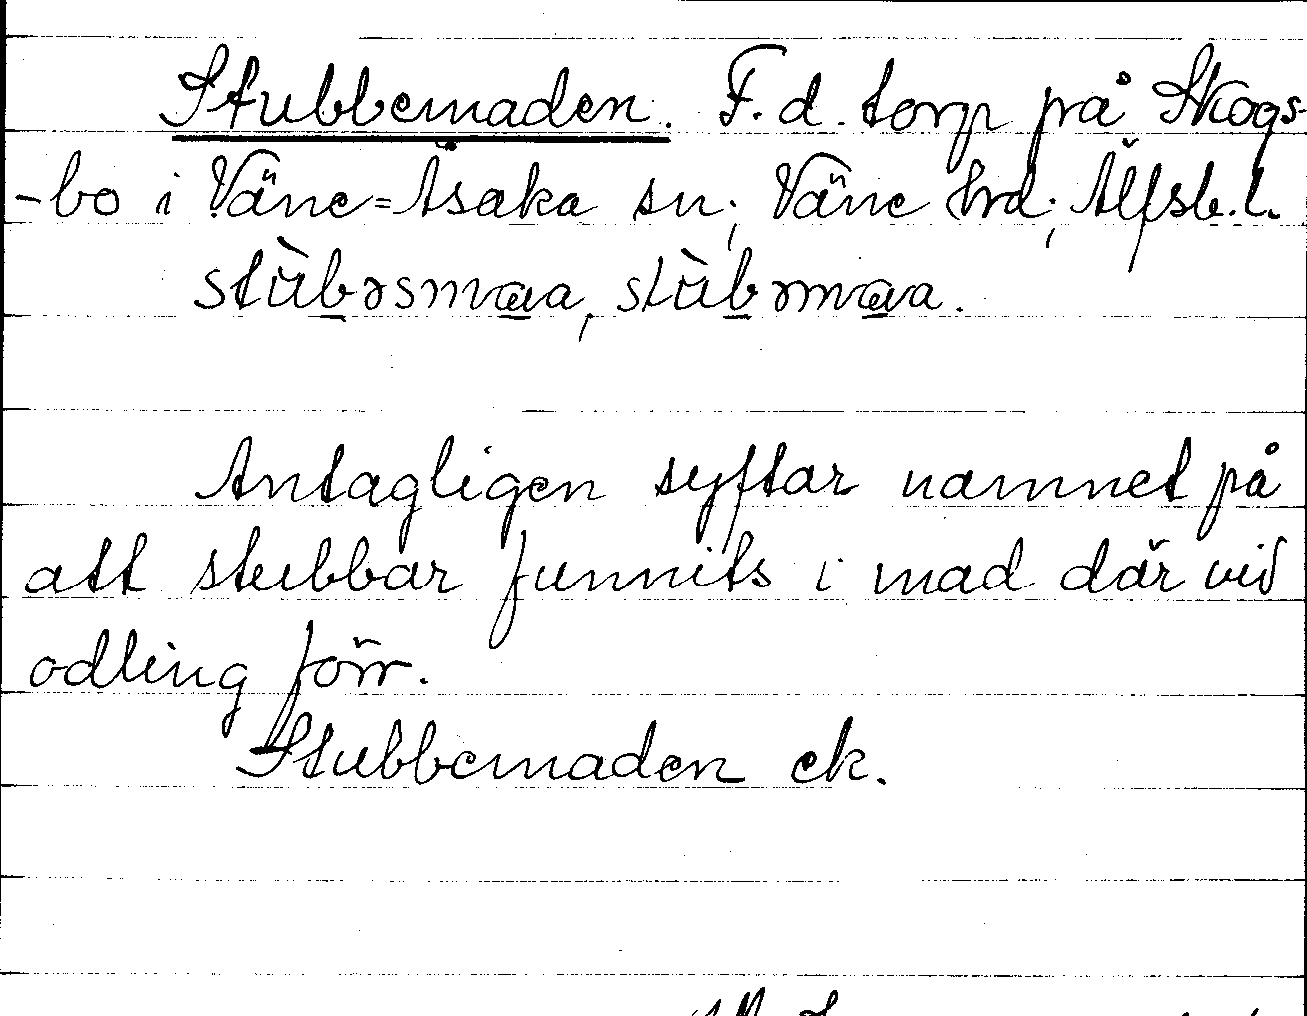 Stubbemaden. F.d. torp på Skogs-
-bo i Väne=Åsaka sn; Väne hrd; Älfsb.l.
stùbəsmaa, stùbəmaa.
Antagligen syftar namnet på
att stubbar funnits i mad där vid
odling förr.
Stubbemaden ek.